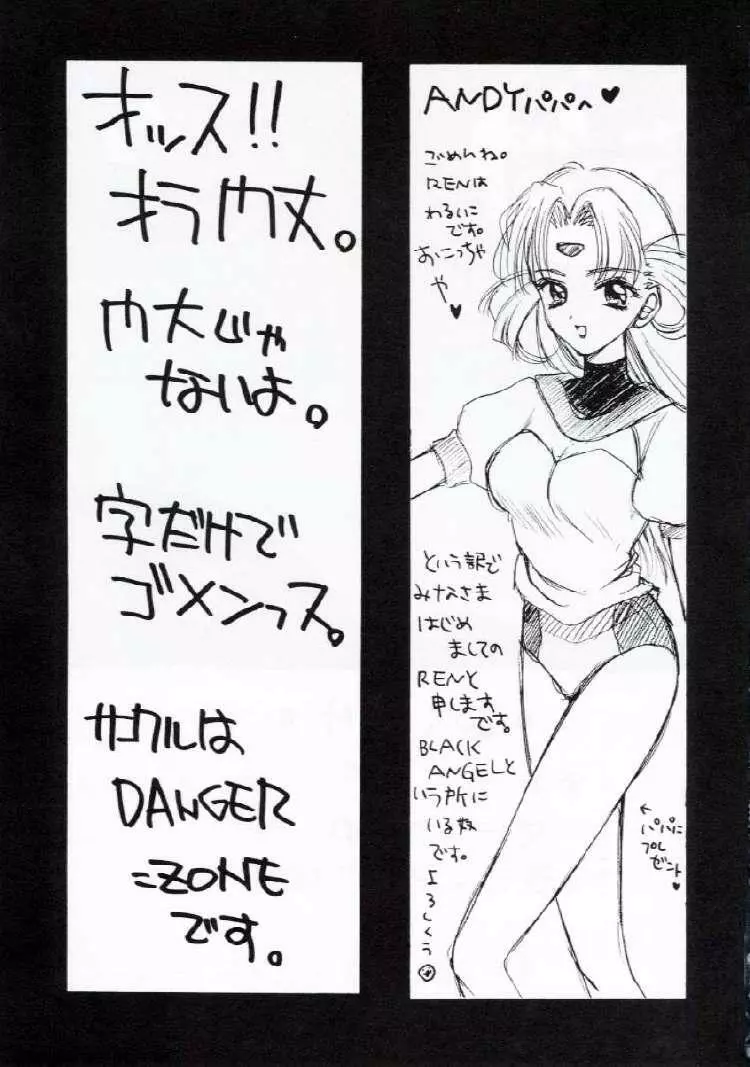 オッス!!
オラ内丈。
内大じゃ
ないよ。
字だけで
ゴメンっス。
サークルは
DANGER
=ZONE
です。
ANDYパパへ♥
ごめんね。
RENは
わるいこ
です。
おこっちゃ
や♥
という訳で
みなさま
はじめ
ましての
RENと
申します
です。
BLACK
ANGELと
いう所に
いる奴
です。
よろしくぅ
←
パパに
プレ
ゼント
♥